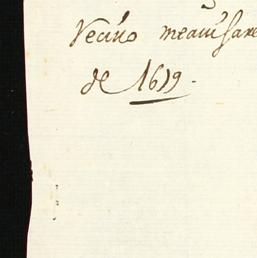 Vecino me avisare
de 1619.